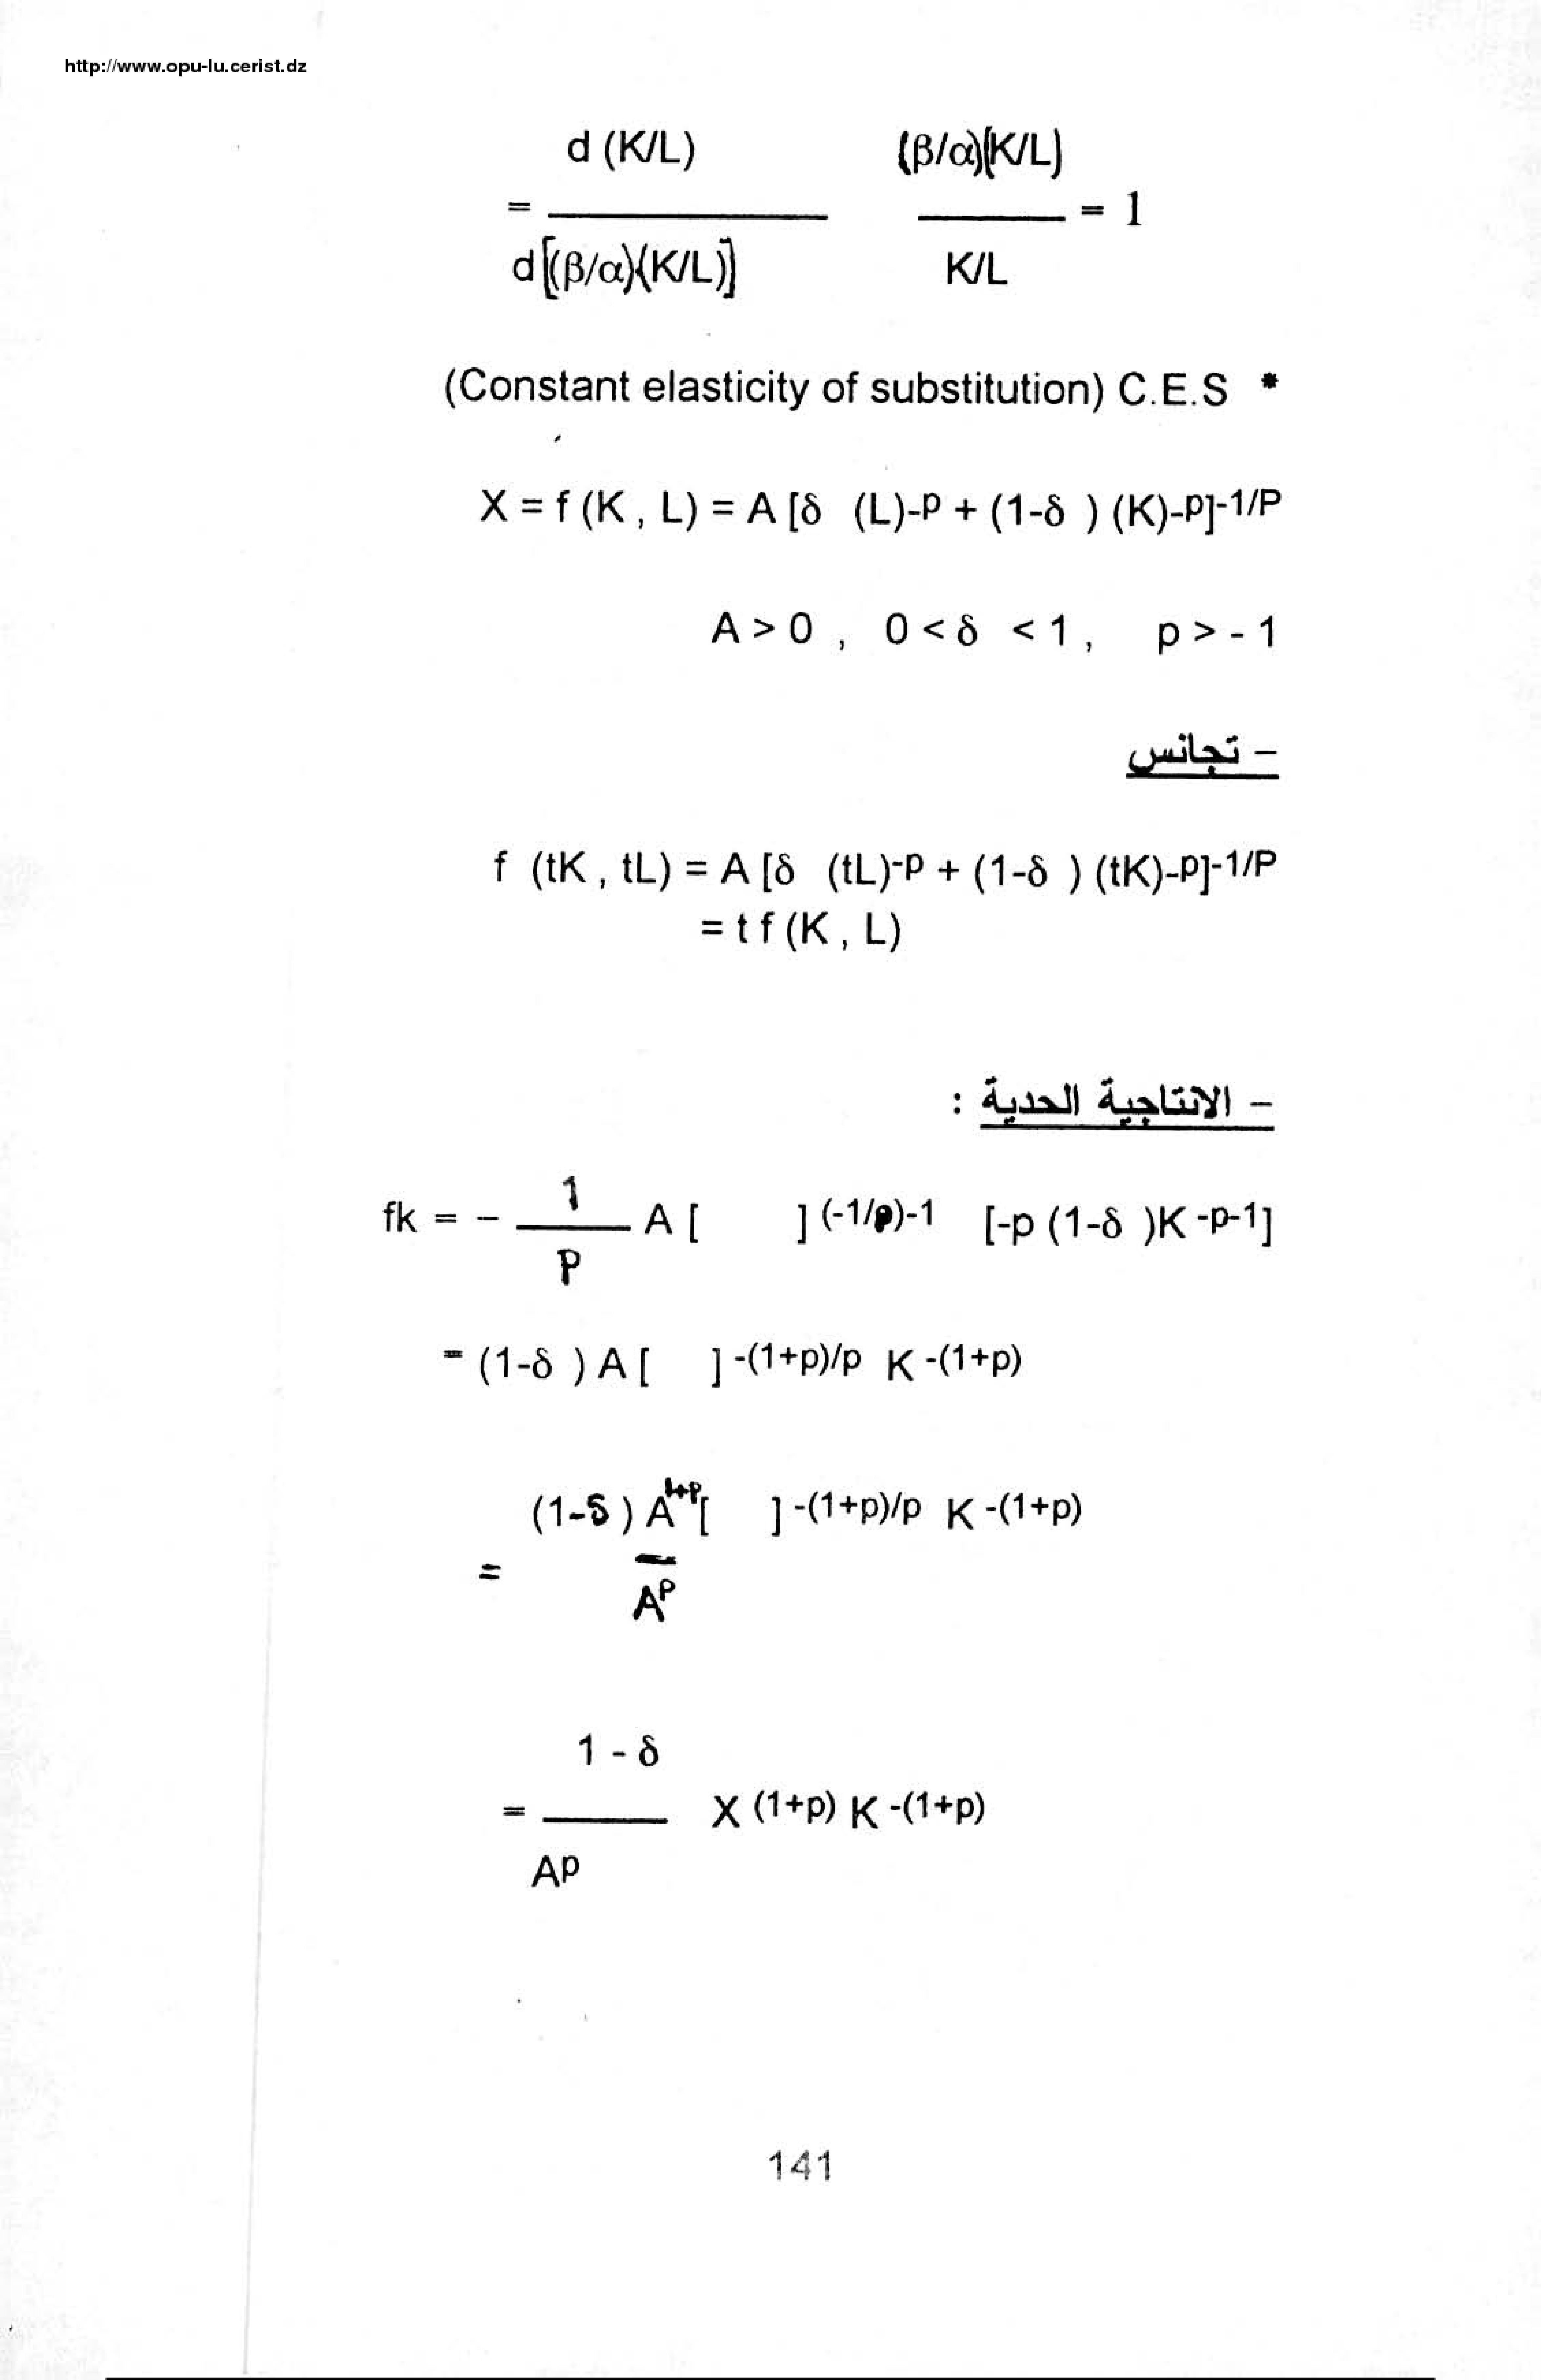 http://www.opu-lu.cerist.dz
d (K/L) (β/α)(K/L)
= ———— ———— = 1
d[(β/α)(K/L)] K/L
(Constant elasticity of substitution) C.E.S *
X = f (K , L) = A [δ (L)-p + (1-δ ) (K)-p]-1/P
A > 0 , 0 < δ < 1 , p > - 1
– تجانس
f (tK , tL) = A [δ (tL)-p + (1-δ ) (tK)-p]-1/P
= t f (K , L)
– الانتاجية الحدية :
1
fk = - ——— A [ ] (-1/p)-1 [-p (1-δ )K -p-1]
P
= (1-δ ) A [ ] -(1+p)/p K -(1+p)
(1-δ ) A1+p[ ] -(1+p)/p K -(1+p)
= —
Ap
1 - δ
= ——— X (1+p) K -(1+p)
Ap
141